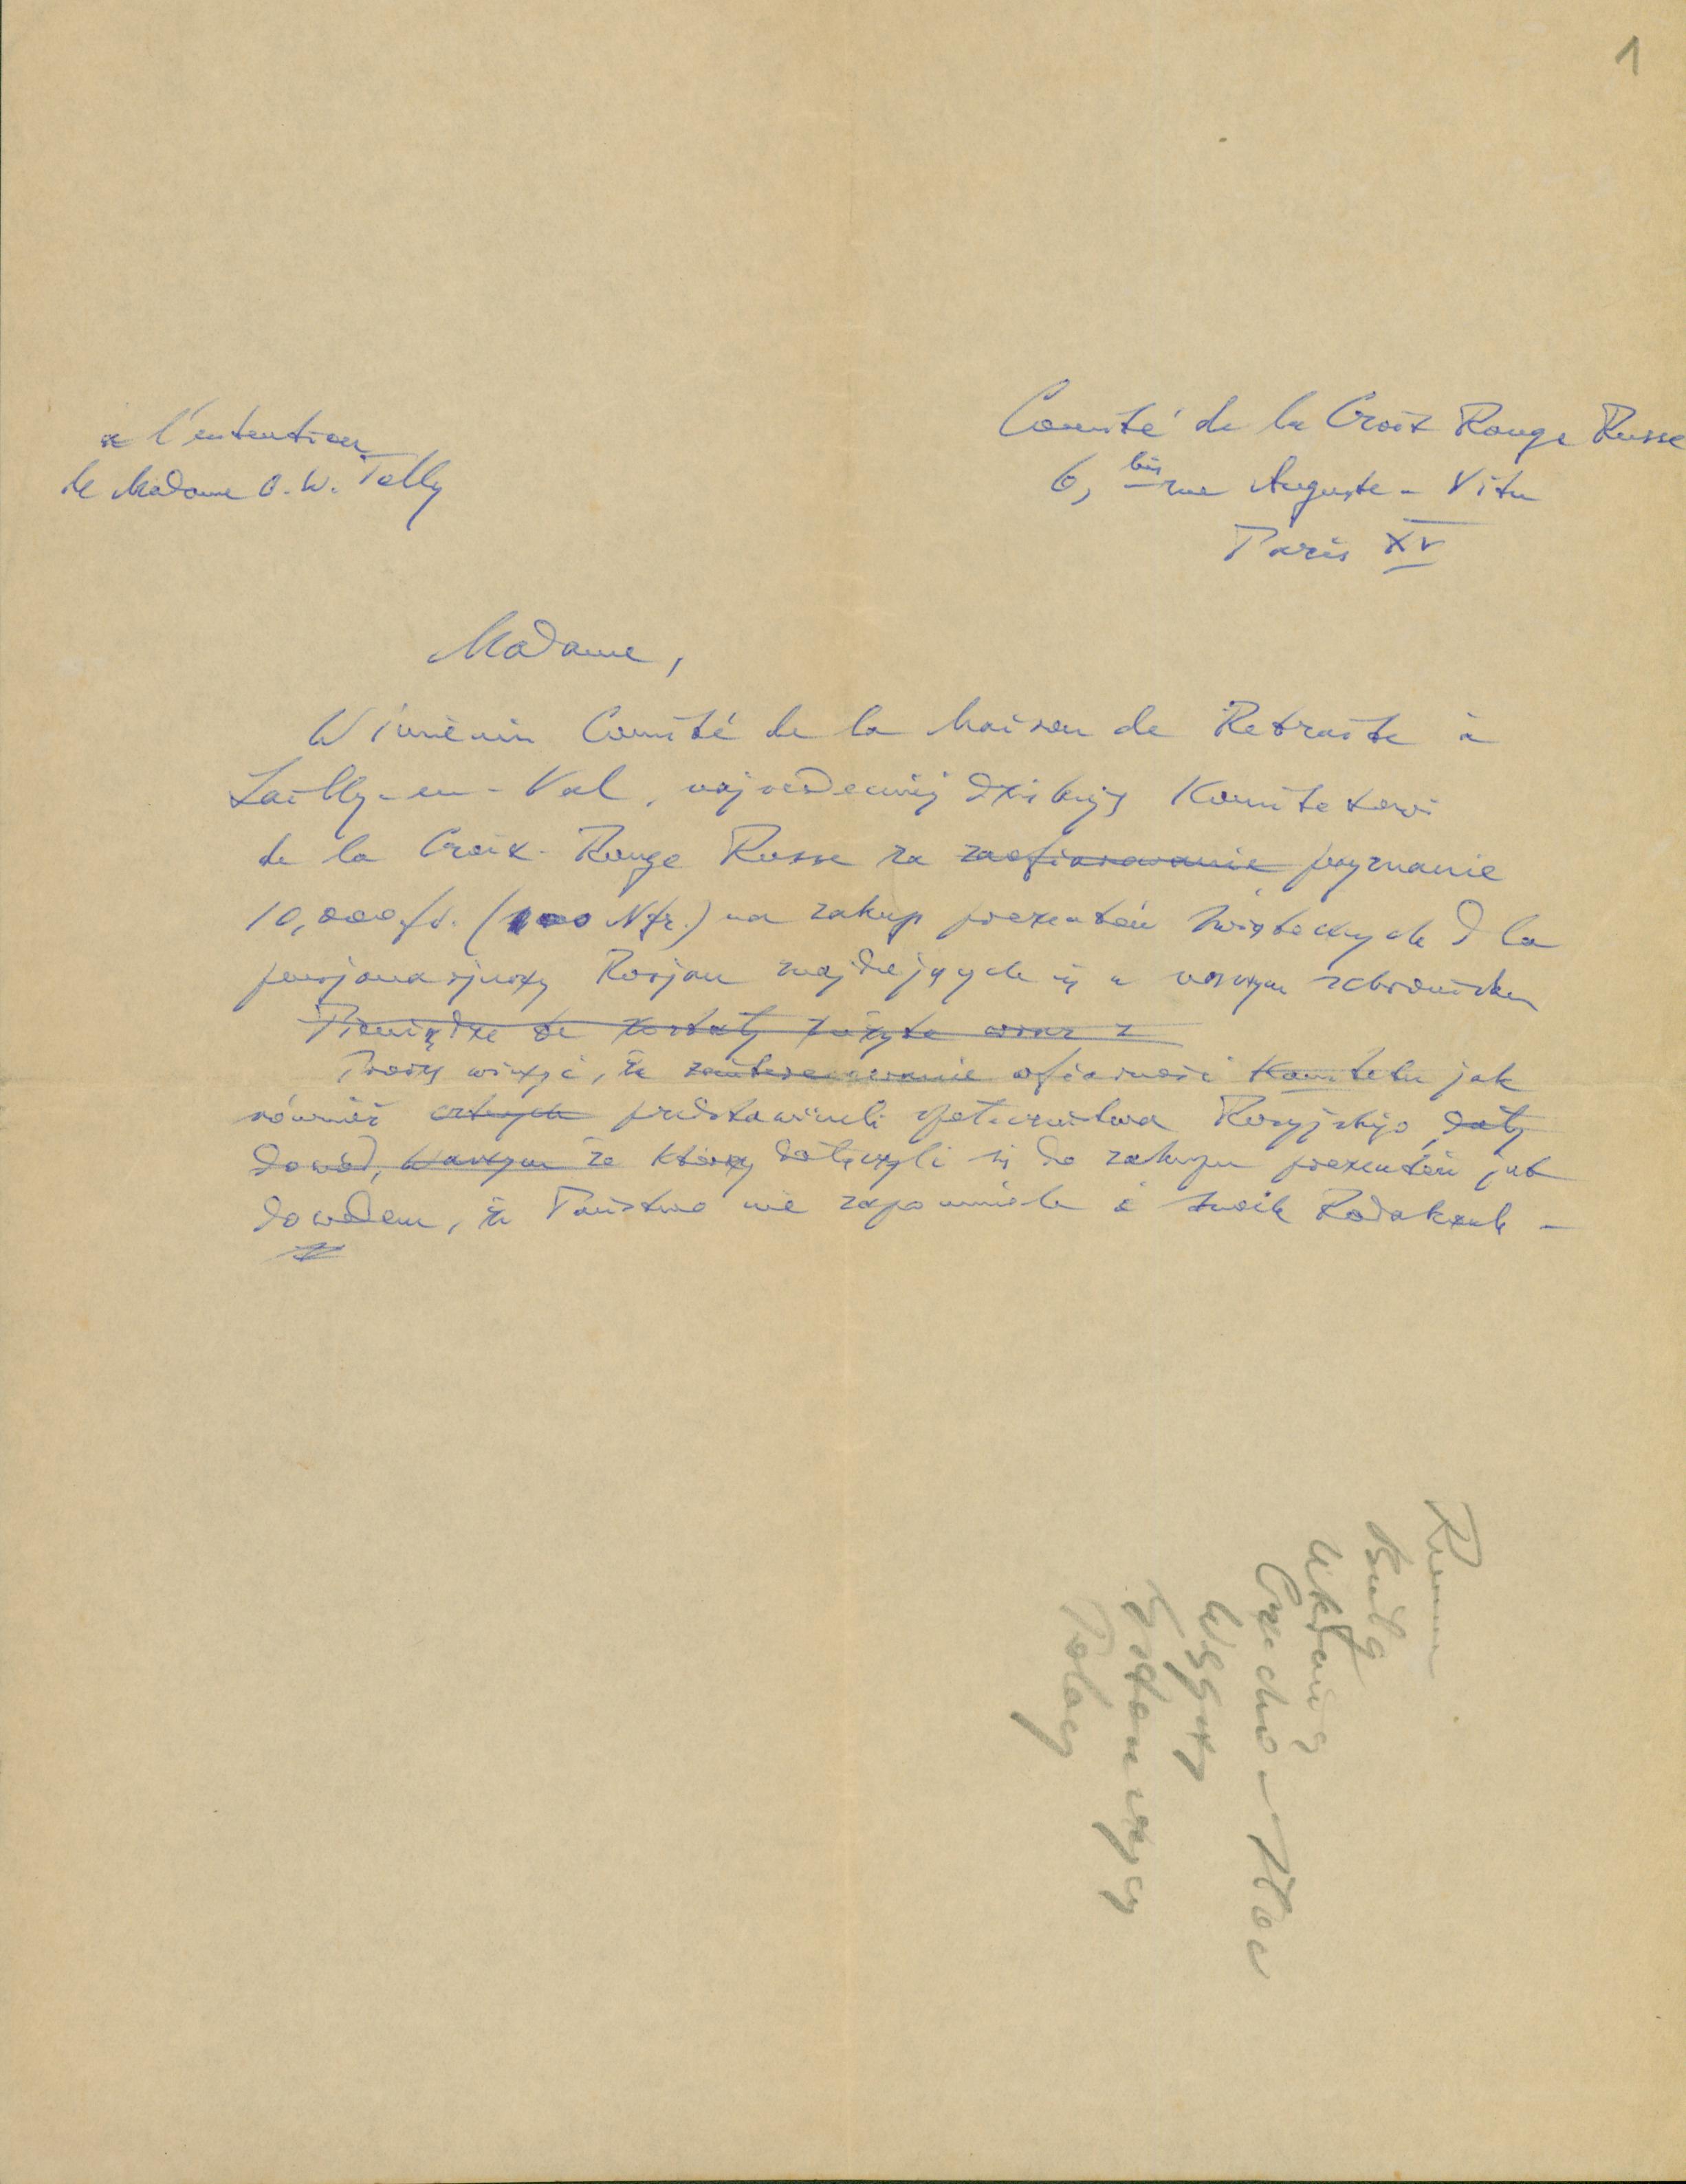 1
a l'entention
de Madame O. W. Tolly
Comité de la Croix Rouge Russe
6, bis rue Auguste - Vitu
Paris XV
Madame,
W imieniu Comité de la Maison de Retraite à
Lailly-en-Val, najserdeczniej dziękuję Komitetowi
de la Croix-Rouge Russe za zaofiarowanie przyznanie
10,000 fr. (100 Nfr.) na zakup prezentów świątecznych dla
pensjonariuszy Rosjan znajdujących się w naszym schronisku
Pieniądze te zostały użyte wraz z
Proszę wierzyć, że zainteresowanie ofiarność Komitetu jak
również przedstawicieli społeczeństwa Rosyjskiego, dały
dowód, że którzy dołączyli się do zakupu prezentów jest
dowodem, że Państwo nie zapomnieli o swoich Rodakach -
Rumun
Bułg
Ukraina
Czecho-słow
Węgrzy
Estończycy
Polacy